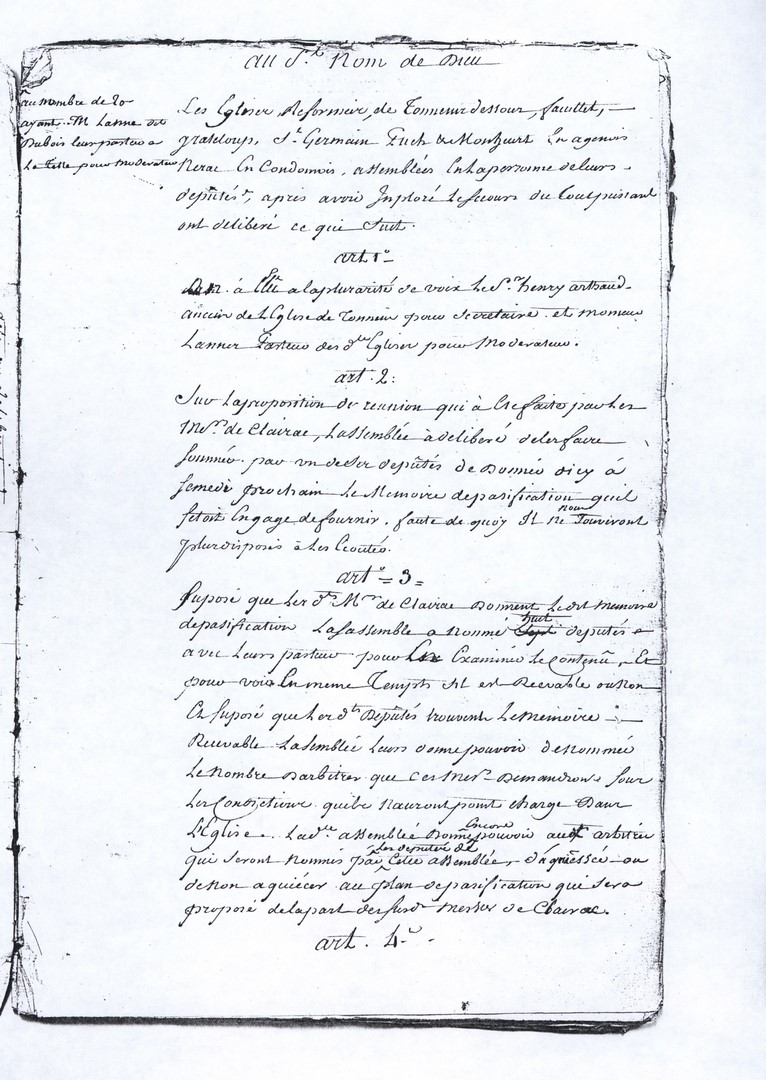 au St Nom de Dieu
au nombre de 20
ayant M Lanne dit
Dubois leur pasteur a
La Tette pour Moderateur
Les Eglises Reformées, de Tonneins dessous, faulliet,
grateloup, St Germain Puch & Monheurt En agenois
Nerac En Condomois, assemblées En la personne de leurs
deputés, apres avoir Inploré Le secours du Toutpuissant
ont deliberé ce qui Suit.
art 1o
à Elu a la pluralité de voix Le Sr henry arthaud
ancien de L'Eglise de Tonneins pour Secretaire et
Lannes Pasteur des dtes Eglises pour Moderateur.
art. 2:
Sur La proposition de reunion qui à Eté faite par Les
Mrs de Clairac, Lassemblée à deliberé de les faire
sommér par un de Ses deputés de Donnér dicy à
samedi prochain Le Memoire de pasification quil
setoit Engagé de fournir, faute de quoy Il ne nous Trouviront
plus disposés à Les Ecoutér.
arto = 3 =
Suposé que Les dts Mrs de Clairac Donnent Le dit Memoire
de pasification Lassemblé a Nommé Sept huit deputés
avec Leurs pasteur pour Examiner Le Contenu, Et
pour voir En meme Temps Sil est Recevable ou Non
Et Suposé que Les dts Deputés trouvent Le Memoire
Recevable Lasemblée Leurs donne pouvoir de Nommér
Le Nombre Darbitres que Ces Mesrs Demandront sous
Les Conditions quils Nauront point charge Dans
L'Eglise. La dte assemblée Donne Encore pouvoir aux arbitres
qui Seront Nommés par Les deputés de Cette assemblée, d'aquiessé ou
de Non aquiécér au plan de pasification qui Sera
proposé de la part des susdts Messrs de Clairac.
art. 4o